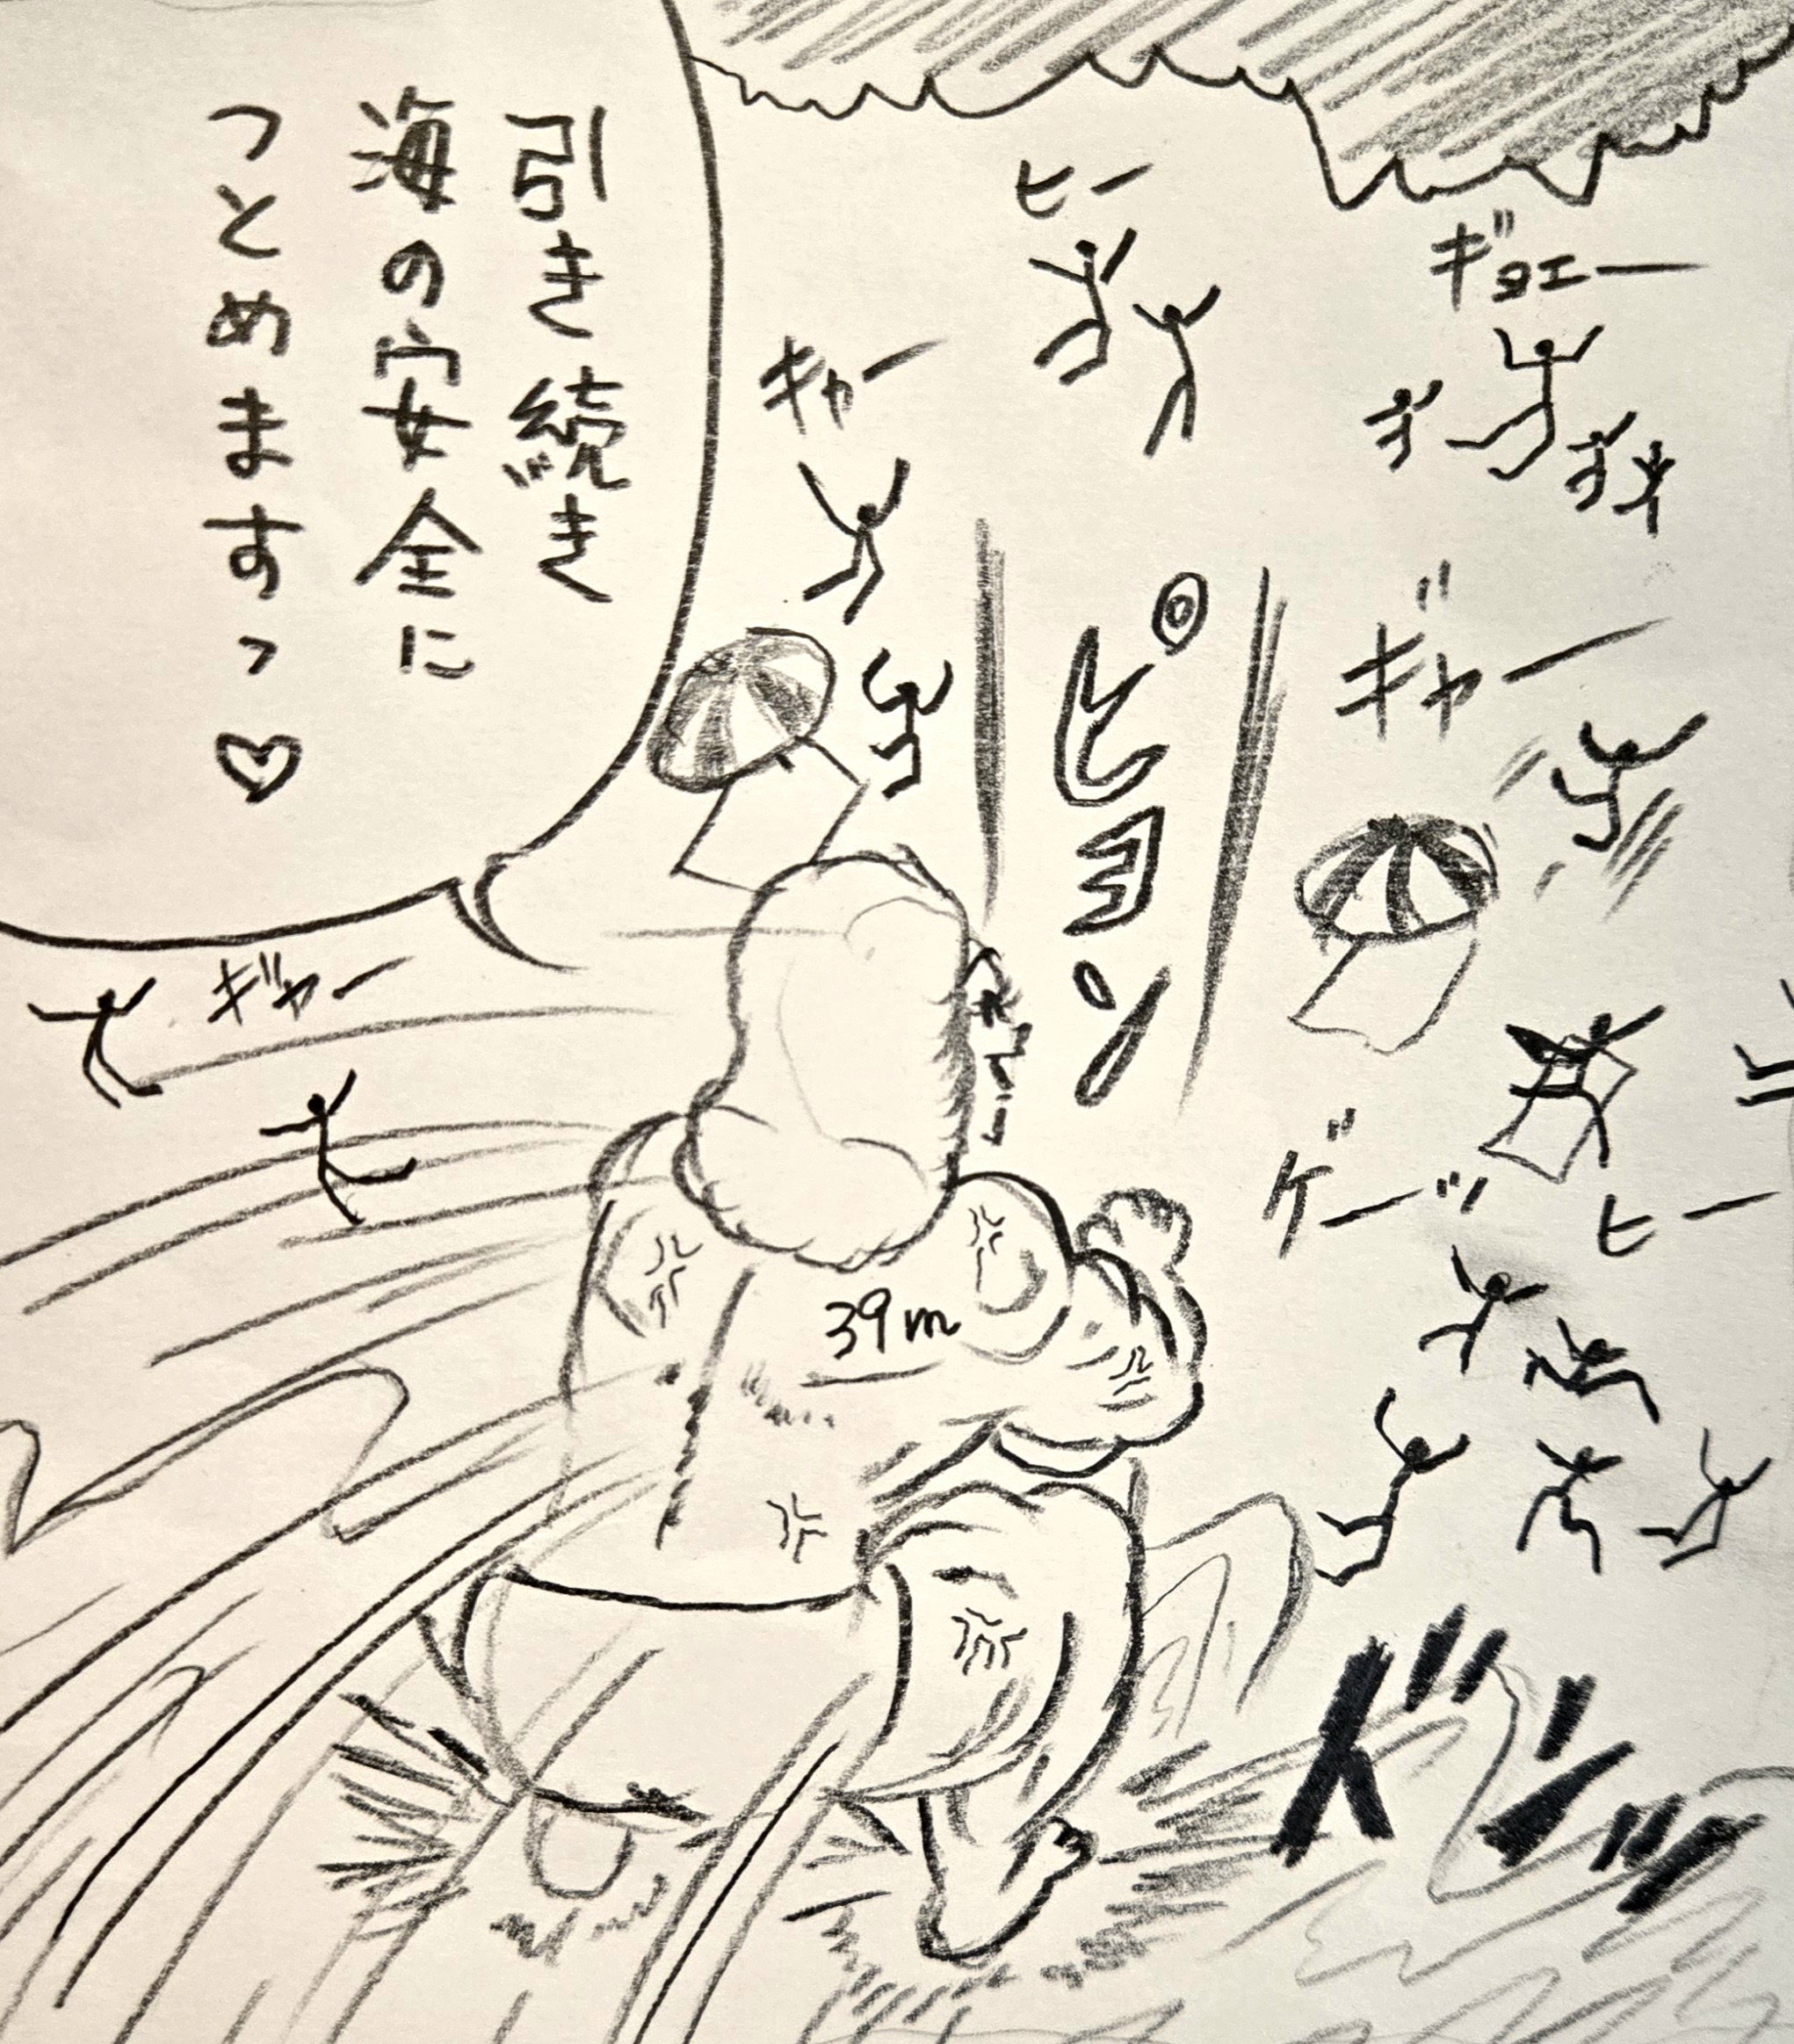 引き続き
海の安全に
つとめますっ♡
ヒー
ギョエー
キャー
ピョン
ギャー
ギャー
ゲーッ
ヒー
39m
ドドッ